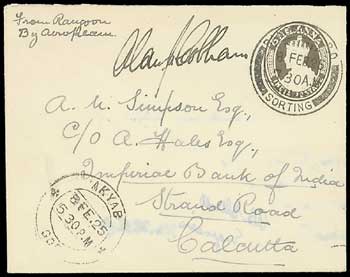 From Rangoon
By Aeroplane
Alan J Cobham
ONE ANNA
FEB
30A
SORTING
A. M. Simpson Esq.,
C/O A. Hales Esq.,
Imperial Bank of India
Strand Road
Calcutta
AKYAB
8 FE.25
5.30 P.M